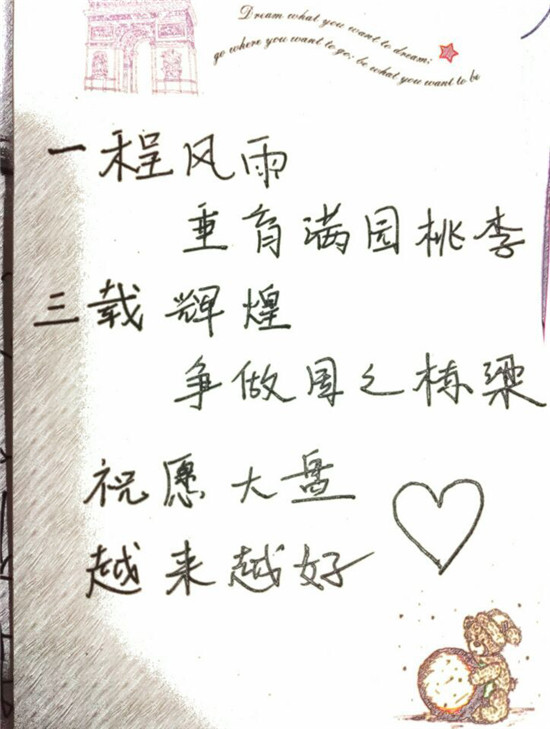 Dream what you want to dream;
go where you want to go; be what you want to be
一程风雨
垂育满园桃李
三载辉煌
争做国之栋梁
祝愿大盘
越来越好